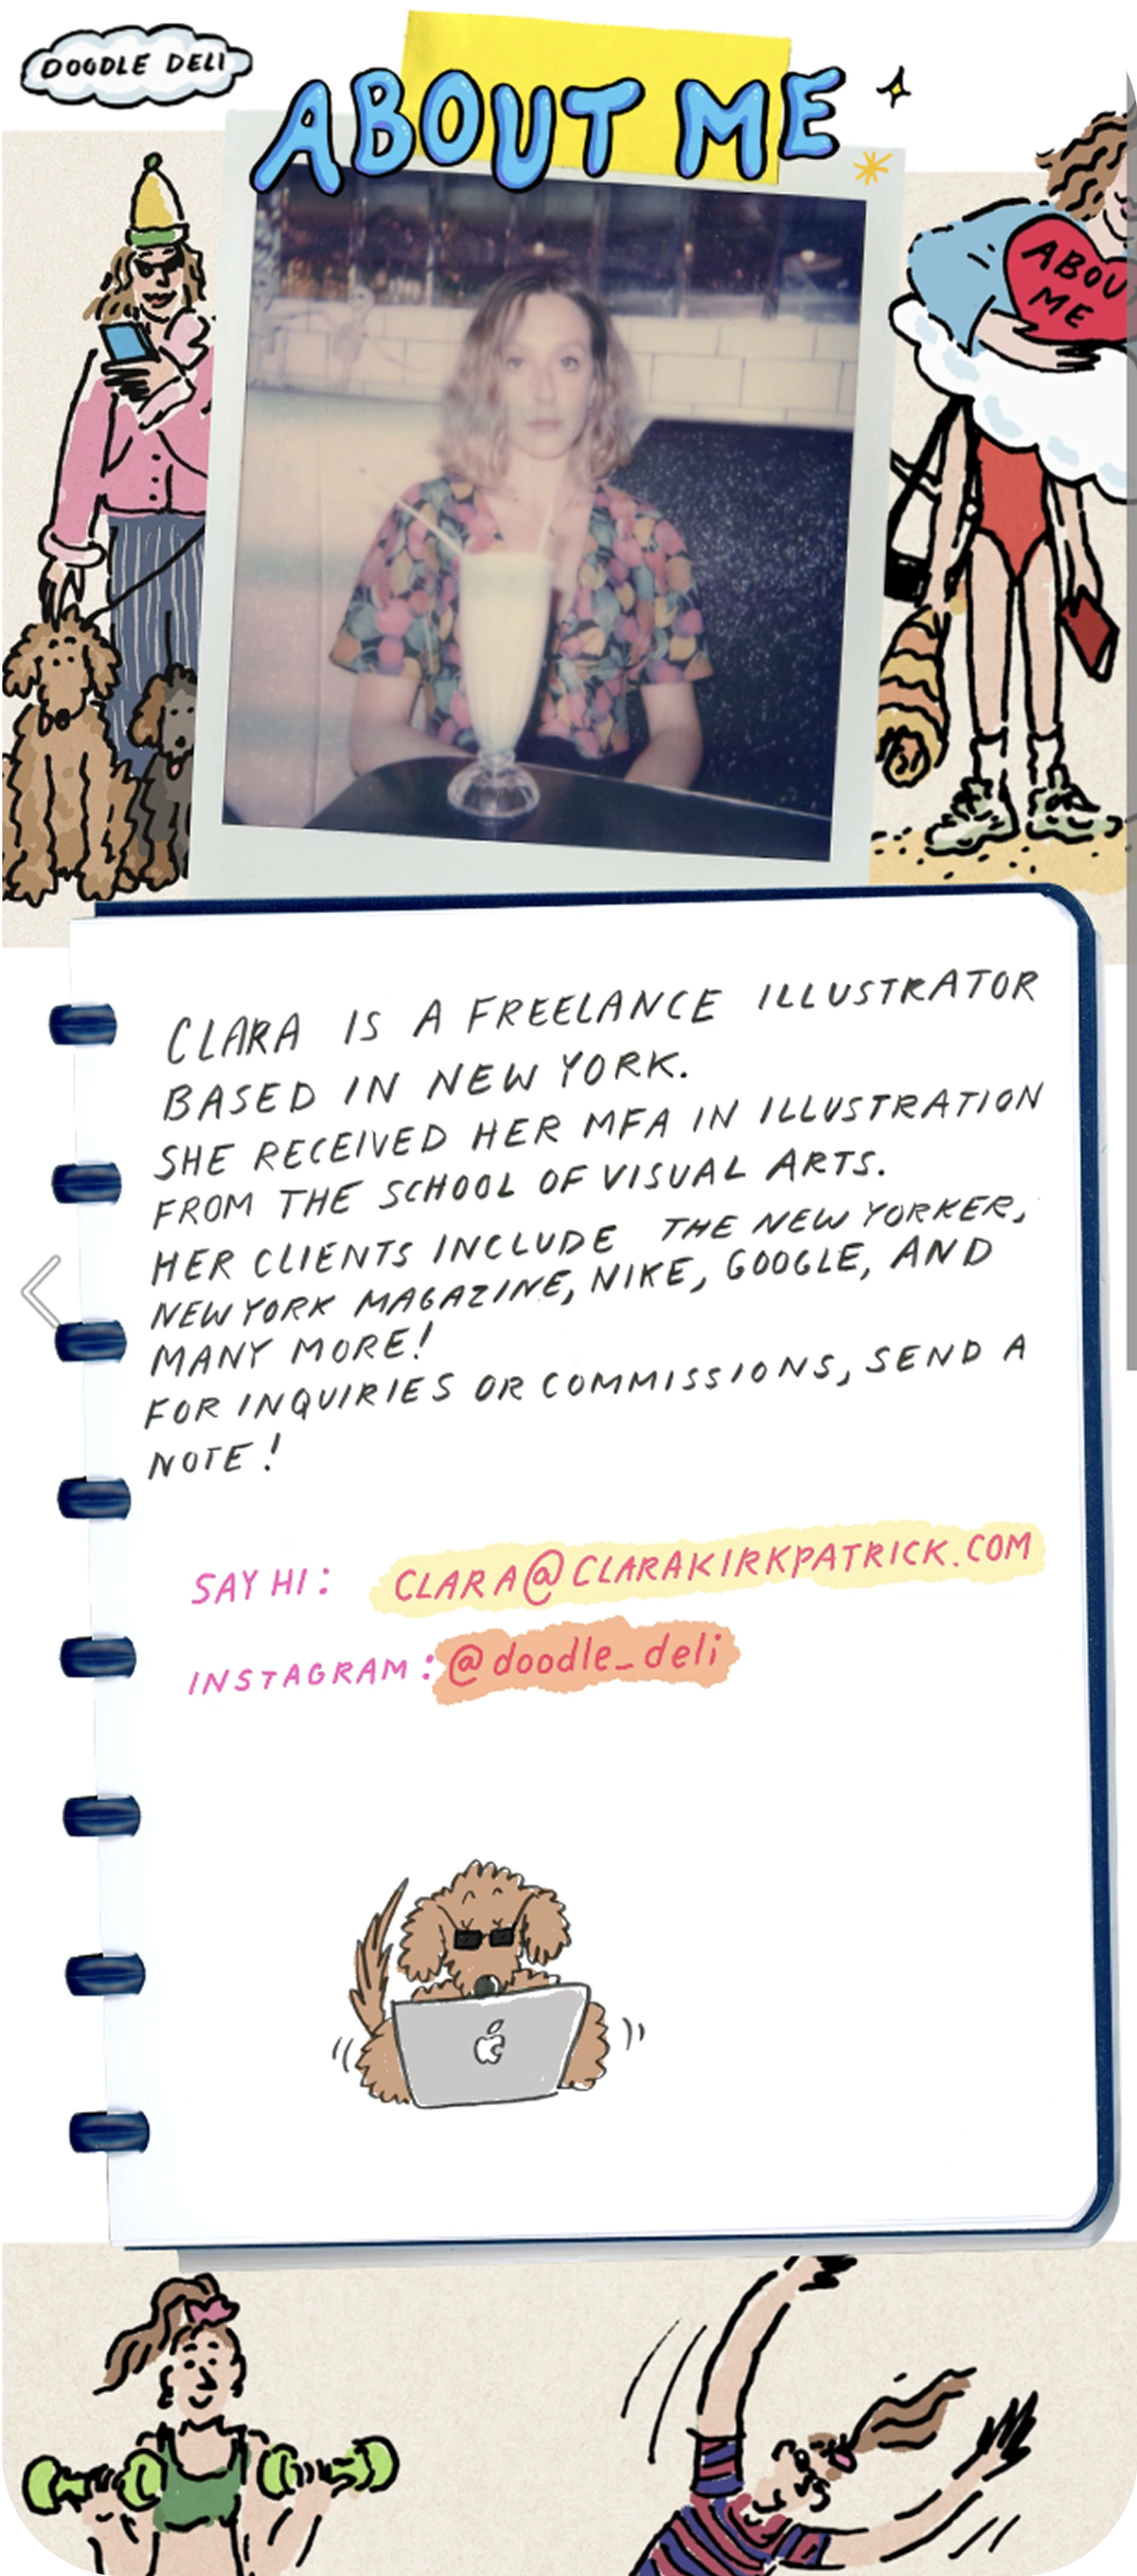 DOODLE DELI
ABOUT ME
ABOU
ME
CLARA IS A FREELANCE ILLUSTRATOR
BASED IN NEW YORK.
SHE RECEIVED HER MFA IN ILLUSTRATION
FROM THE SCHOOL OF VISUAL ARTS.
HER CLIENTS INCLUDE THE NEW YORKER,
NEW YORK MAGAZINE, NIKE, GOOGLE, AND
MANY MORE!
FOR INQUIRIES OR COMMISSIONS, SEND A
NOTE!
SAY HI: CLARA@CLARAKIRKPATRICK.COM
INSTAGRAM: @doodle_deli